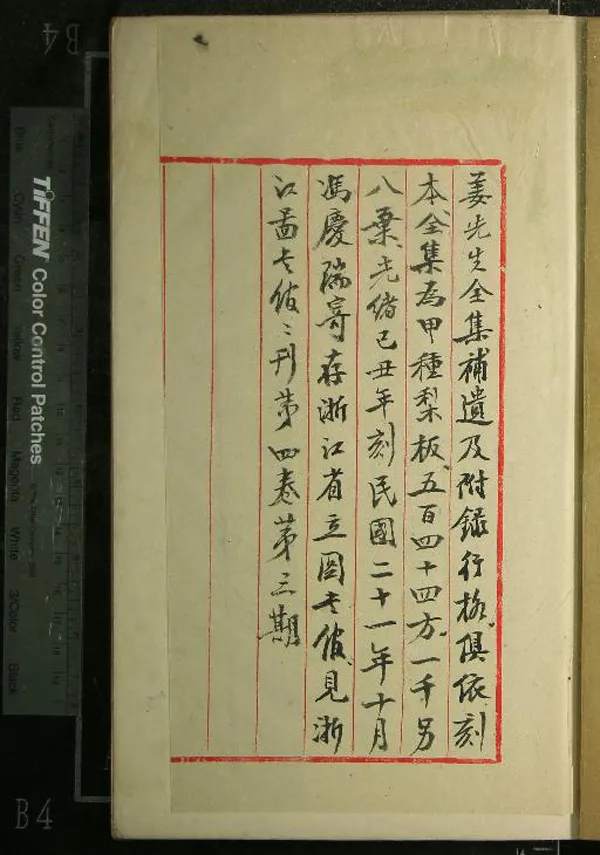 姜先生全集補遺及附錄行格俱依刻
本全集為甲種梨板五百四十四方一千另
八葉光緒己丑年刻民國二十一年十月
馮慶瑞寄存浙江省立圖書館見浙
江圖書館館刊第四卷第三期
TIFFEN Color Control Patches
Blue
Cyan
Green
Yellow
Red
Magenta
White
3/Color
Black
B4
B4